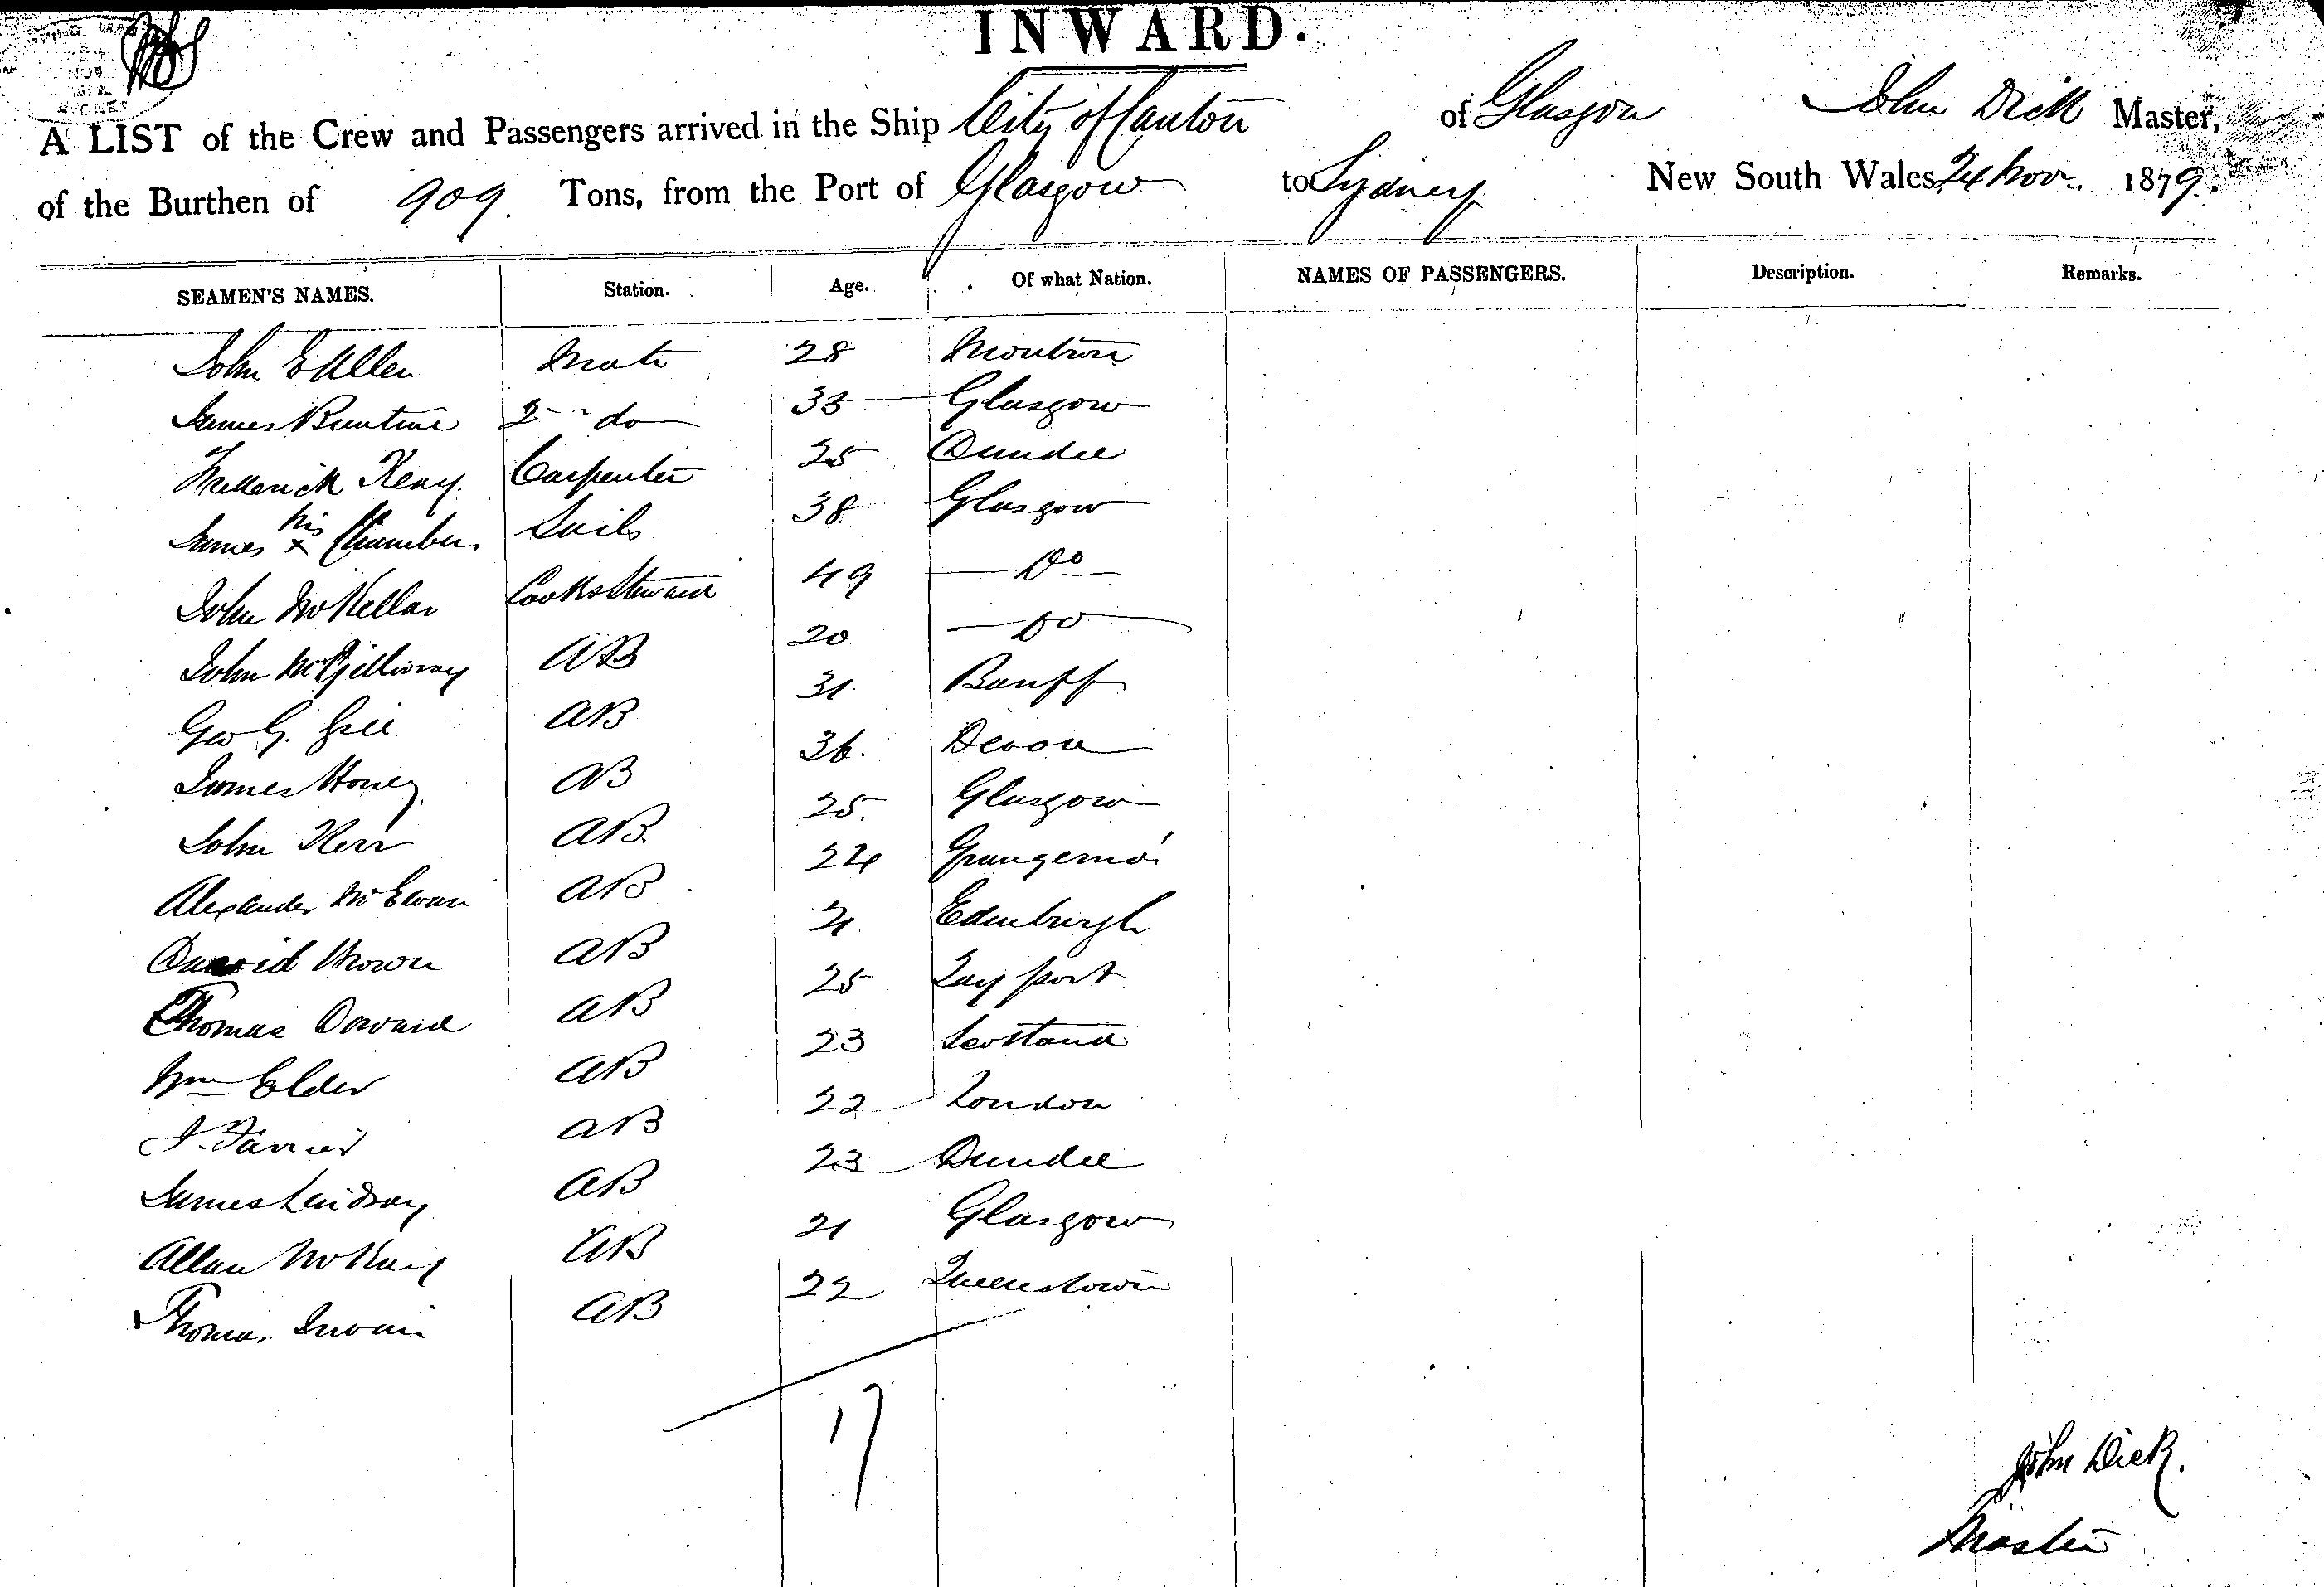 INWARD.
A LIST of the Crew and Passengers arrived in the Ship City of Canton of Glasgow John Dick Master,
of the Burthen of 909 Tons, from the Port of Glasgow to Sydney New South Wales 24 Nov. 1879.
SEAMEN'S NAMES. Station. Age. Of what Nation. NAMES OF PASSENGERS. Description. Remarks.
John E Allen Mate 28 Montrose
James Buntine 2 do 33 Glasgow
Frederick Keay Carpenter 25 Dundee
James his x Chamber Sails 38 Glasgow
John McKellar Cook & Steward 49 Do
John McGillivray AB 20 Do
Geo G. AB 31 Banff
James Honey AB 36. Devon
John Kerr AB. 25. Glasgow
Alexander McEwan AB 24
David Brown AB 21 Edinburgh
Thomas Doward AB 25 Tayport
Wm Elder AB 23 Scotland
J. Farrier AB 22 London
James Lindsay AB 23 Dundee
Allan AB 21 Glasgow
Thomas Irwin AB 22 Queenstown
17
John Dick.
Master